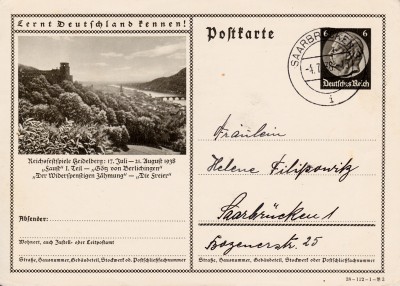 Lernt Deutschland kennen!
Postkarte
SAARBRÜCKEN
1
6 6
Deutsches Reich
Reichsfestspiele Heidelberg: 17. Juli — 21. August 1938
„Faust“ I. Teil — „Götz von Berlichingen“
„Der Widerspenstigen Zähmung“ — „Die Freier“
Absender:
Wohnort, auch Zustell- oder Leitpostamt
Straße, Hausnummer, Gebäudeteil, Stockwerk od. Postschließfachnummer
Fräulein
Helene Filipowitz
Saarbrücken 1
Bozenerstr. 25
Straße, Hausnummer, Gebäudeteil, Stockwerk oder Postschließfachnummer